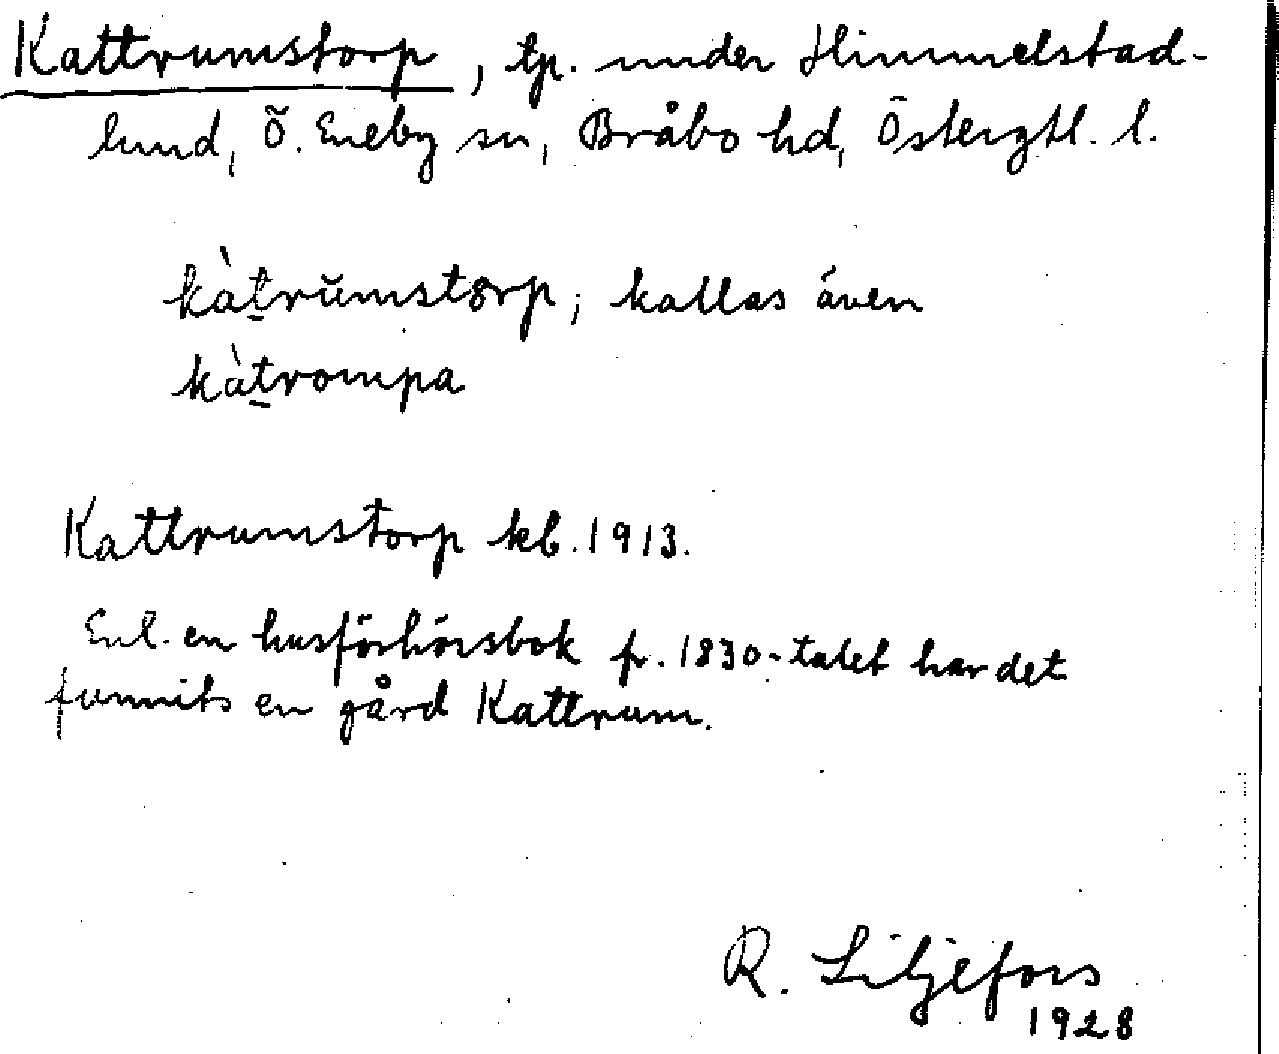 Kattrumstorp, tp. under Himmelstad-
lund, Ö. Eneby sn, Bråbo hd, Östergtl. l.
kàt̠rŭmstorp; kallas även
kàt̠rompa
Kattrumstorp kb. 1913.
Enl. en husförhörsbok fr. 1830-talet har det
funnits en gård Kattrum.
R. Liljefors
1928